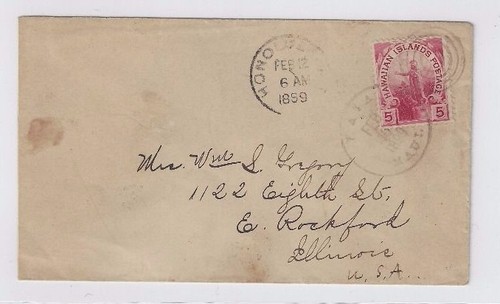 HONOLULU
FEB 12
6 AM
1899
HAWAIIAN ISLANDS POSTAGE
5 5
MAUI
Mrs. Wm S. Gregory
1122 Eighth St.
E. Rockford
Illinois
U.S.A.